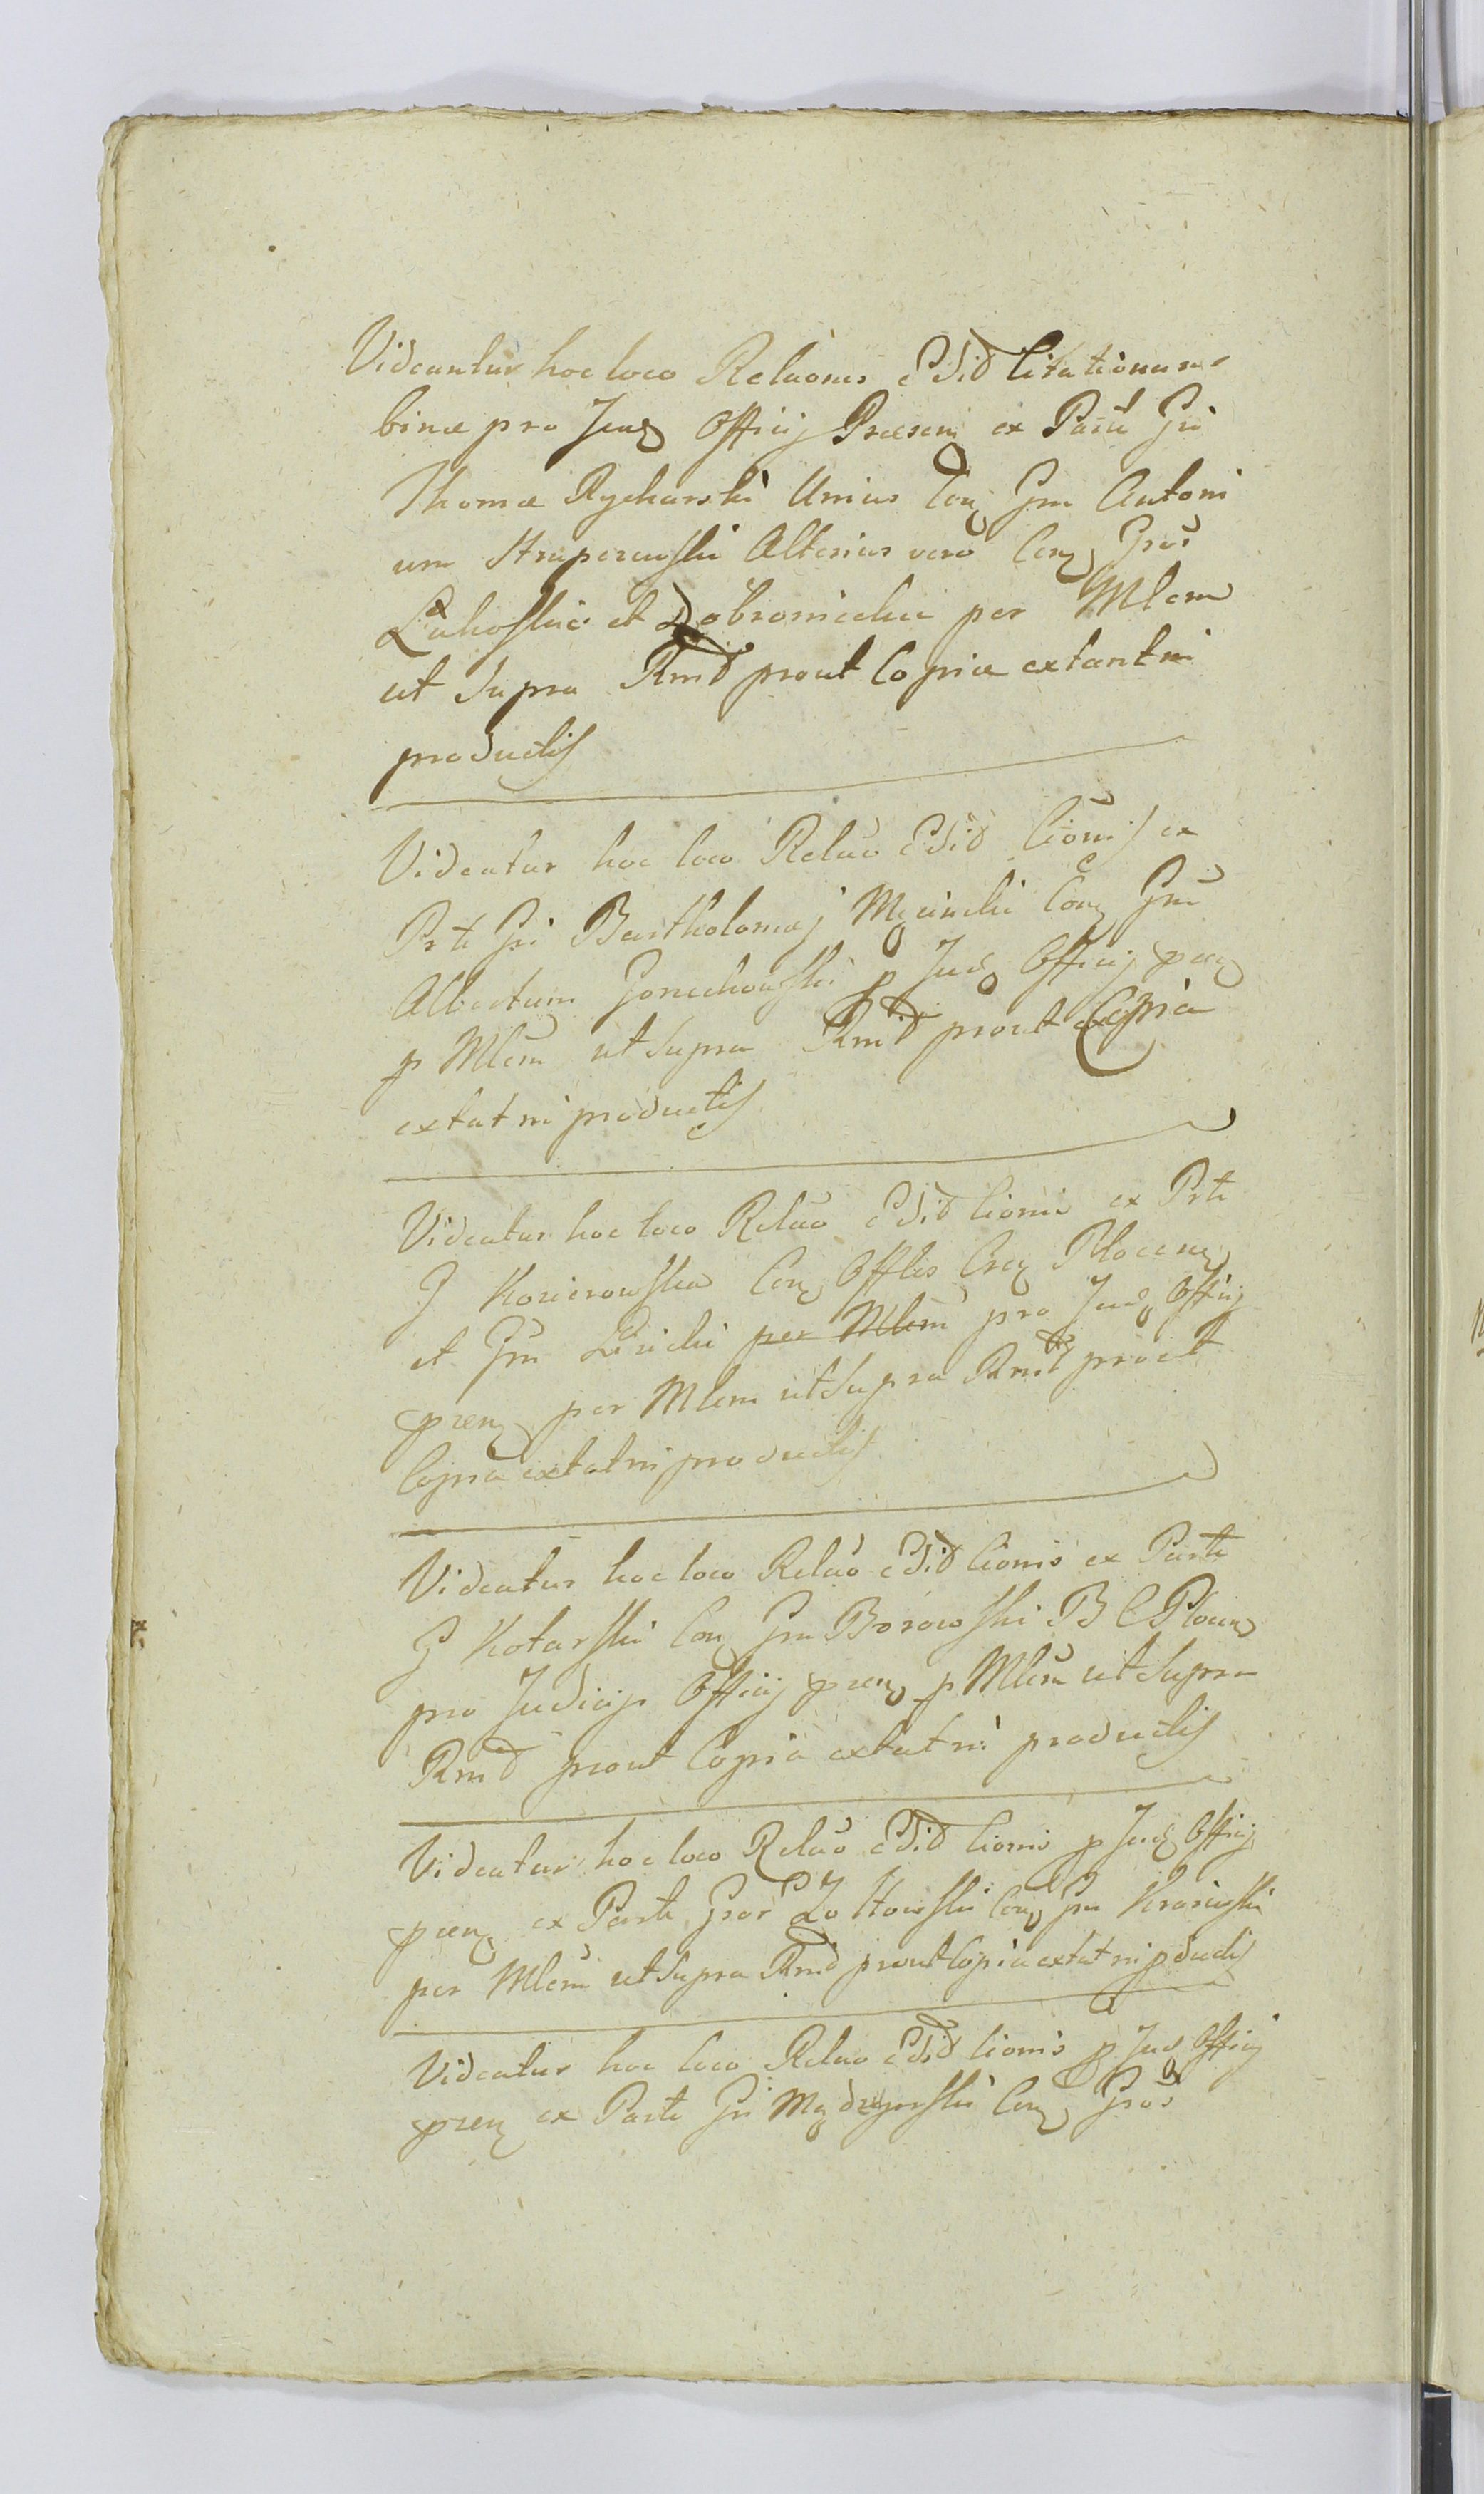 Videantur hoc loco Relaōnes Edid Citationum
binæ pro Jud Officij Præsen ex Parte Gi
Thomæ Rycharski Unius Con Gm Antoni
um Strupczewski Alterius vero Con Gros
Łukoskie et Dobronieckie per Mlem
ut Supra Rmd prout Copiæ extant in
productis
Videatur hoc loco Relaō Edid Cionis ex
Prte Gi Bartholomej Mycinski Con Gm
Albertum Goneckowski p Jud Officij præn
p Mlem ut Supra Rmd prout Copia
extat in productis
Videatur hoc loco Relaō Edid Cionis ex Prte
G Kozierowska Con Offles Crey Plocen
et Gm per Mlem pro Jud Officij
præn per Mlem ut Supra Rmd prout
Copia extat in productis
Videatur hoc loco Relaō Edid Cionis ex Parte
G Kotarski Con Gm Borowski B C Plocen
pro Judicijs Officij præn p Mlem ut Supra
Rmd prout Copia extat in productis
Videatur hoc loco Relaō Edid Cionis p Jud Officij
præn ex Parte Gror Zołtowskie Con Gm Krasinski
per Mlem ut Supra Rmd prout Copia extat in pductis
Videatur hoc loco Relaō Edid Cionis p Jud Officij
præn ex Parte Gi Mędrzycki Con Gros